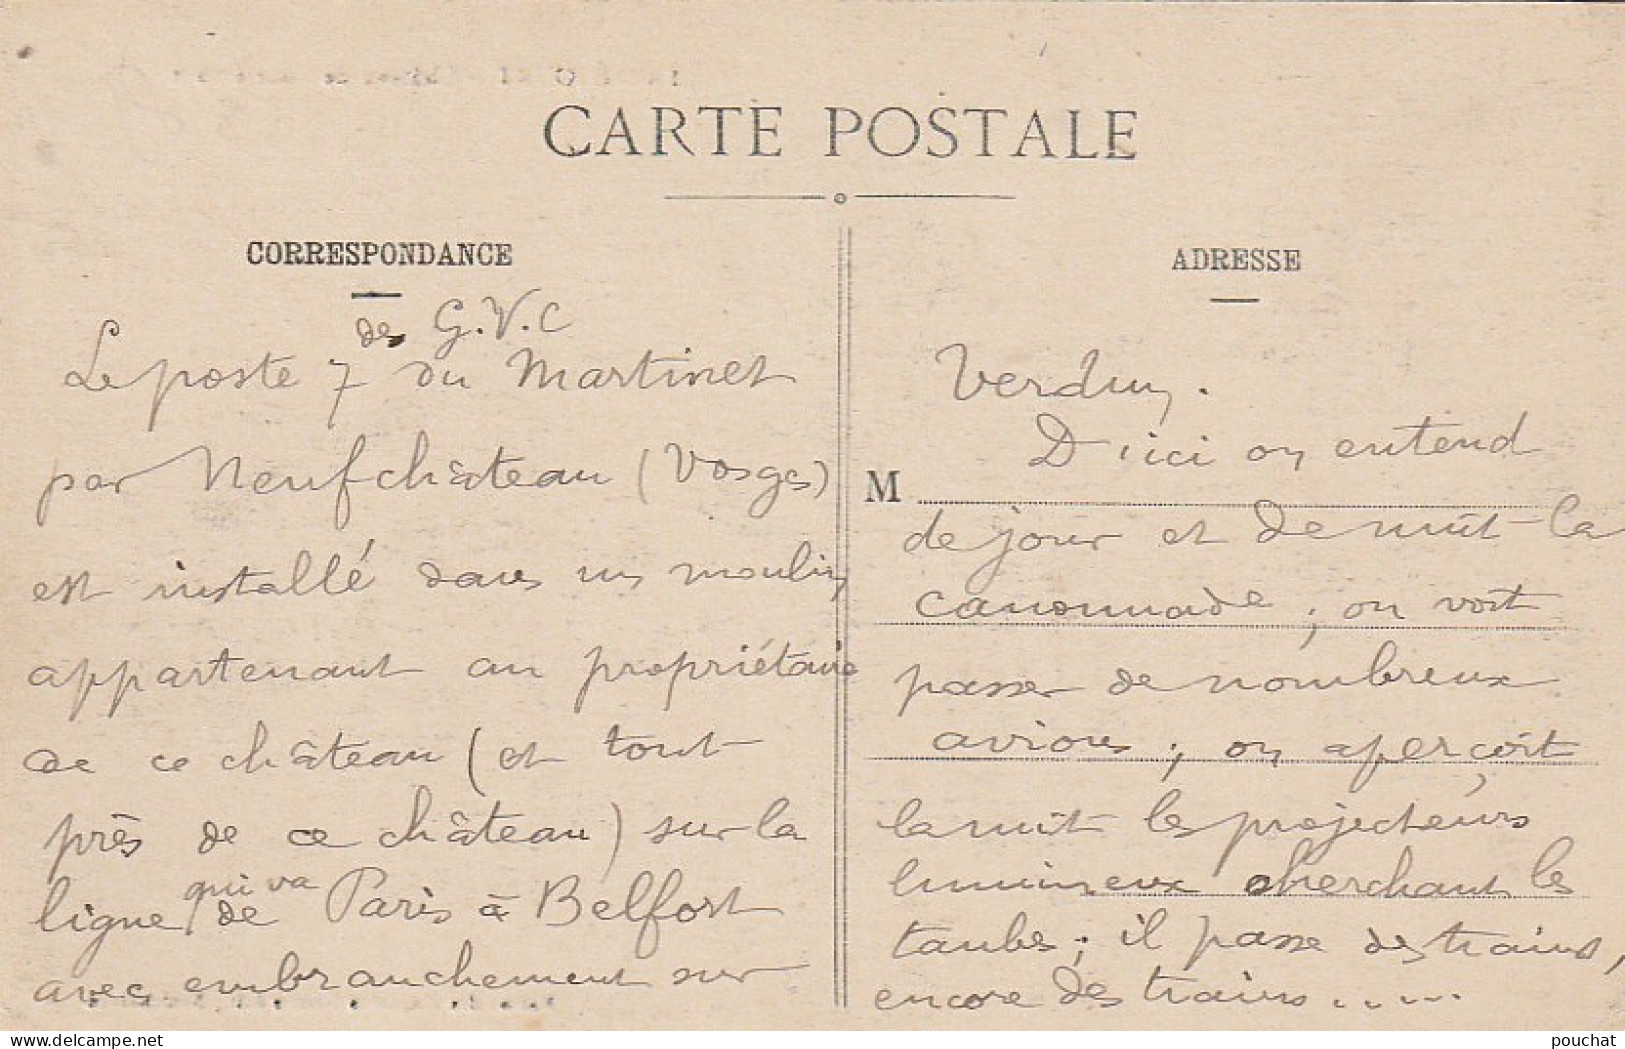 CARTE POSTALE
CORRESPONDANCE
des G.V.C
Le poste 7 du Martinet
par Neufchâteau (Vosges)
est installé dans un moulin,
appartenant au propriétaire
de ce château (et tout
près de ce château) sur la
qui va
ligne de Paris à Belfort
avec embranchement sur
ADRESSE
Verdun.
D'ici on entend
M
de jour et de nuit la
canonnade ; on voit
passer de nombreux
avions ; on aperçoit
la nuit les projecteurs
lumineux cherchant les
taubes ; il passe des trains,
encore des trains.....
delcampe.net
pouchat